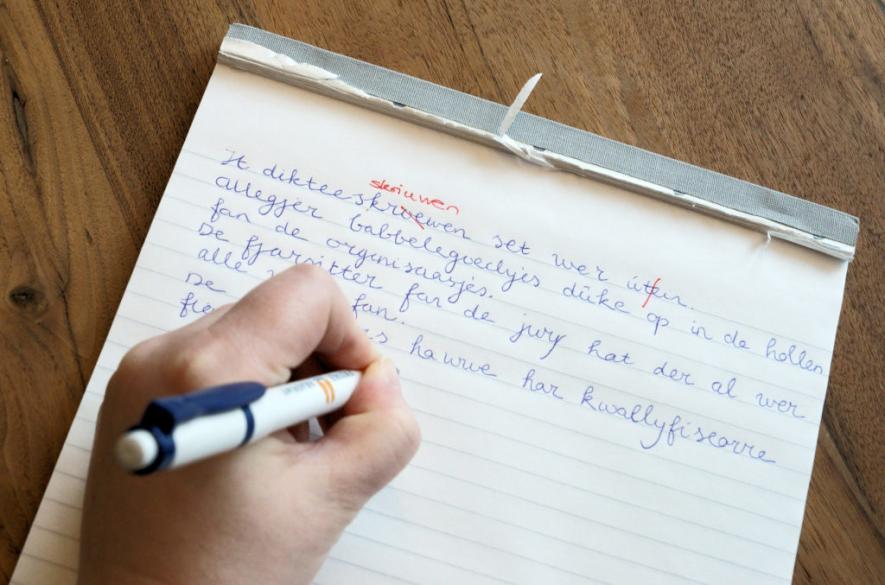 skriuwen
It dikteeskroewen set wer
allegjer babbelegoedsjes dûke op in de hollen
fan de organisaasjes.
De fjarsitter fan de jury hat der al wer
alle fan.
De hawwe har kwallyfisearre